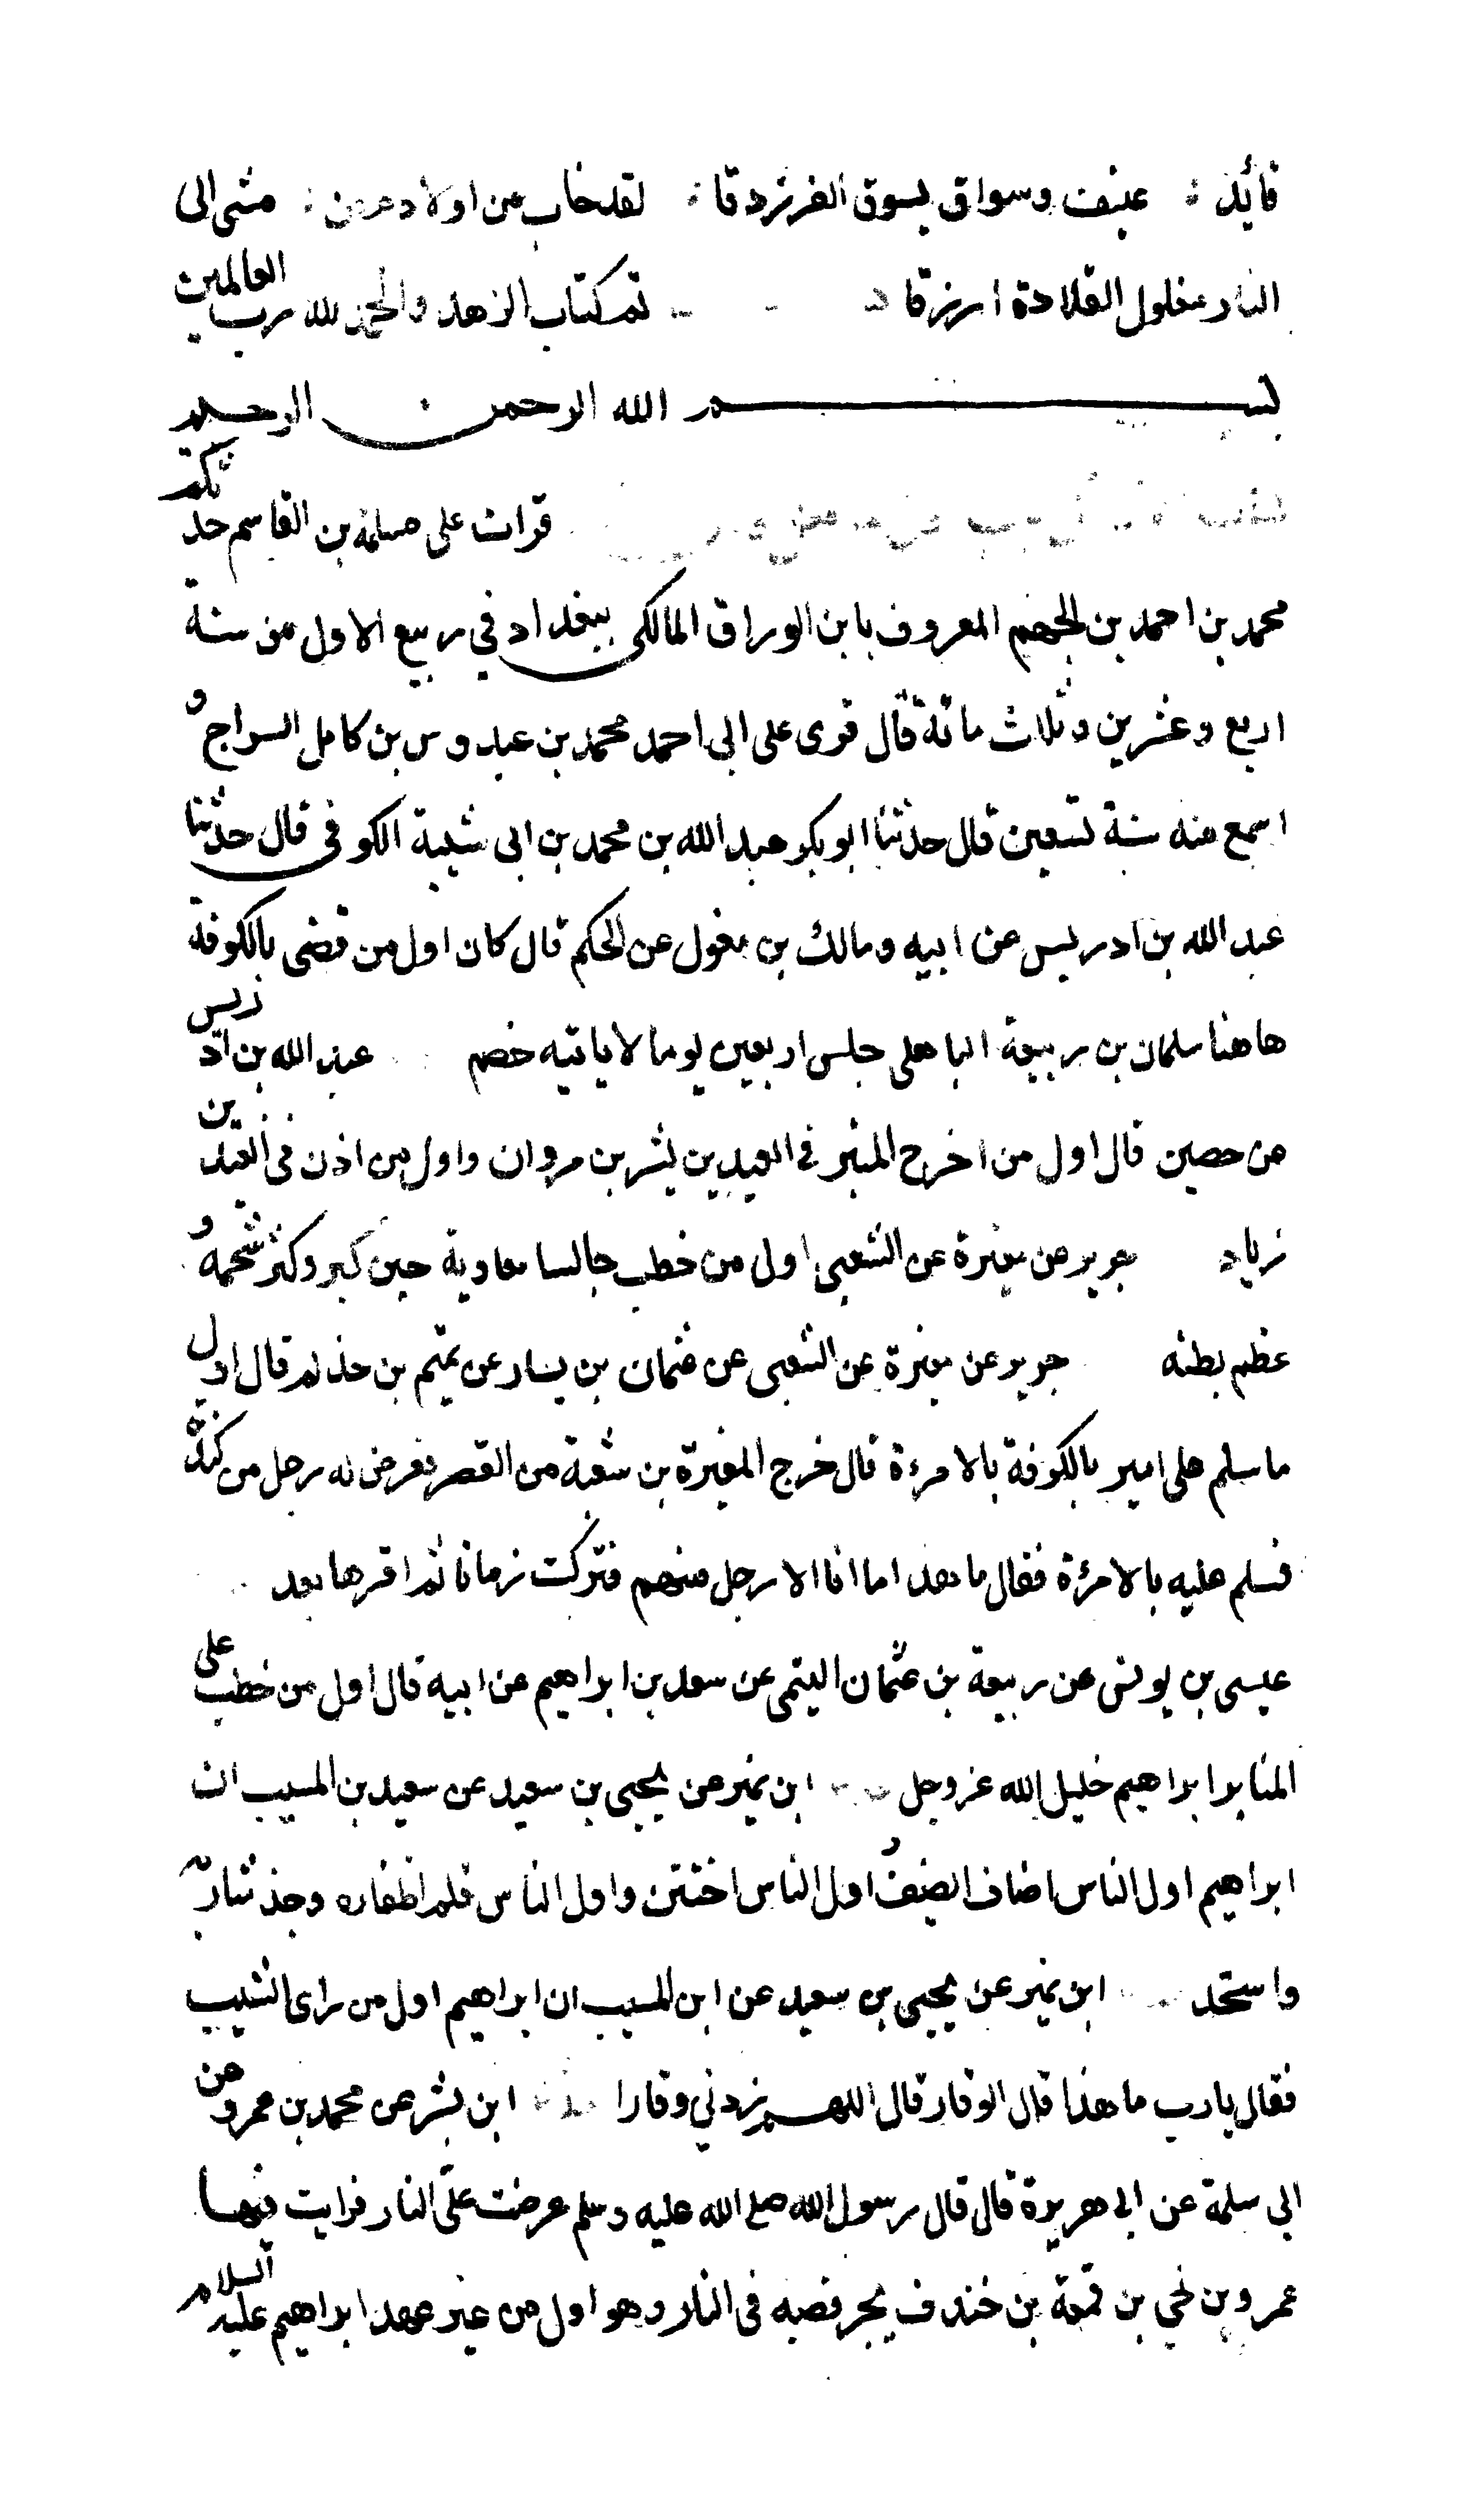 قائد ؛ عنيف وسواق يسوق الفرزدقا ؛ لقد خاب من اولاد من ؛ مشى الى
النار مغلول القلادة ازرقا تم كتاب الزهد والحمد لله رب العالمين
بسم الله الرحمن الرحيم
قرات على مسلمة بن القاسم حدثكم
محمد بن احمد بن الجهم المعروف بابن الوراق المالكى ببغداد في ربيع الاول من سنة
اربع وعشرين وثلاث مائة قال قرى على ابى احمد محمد بن عبدوس بن كامل السراج و
اسمع منه سنة تسعين قال حدثنا ابو بكر عبد الله بن محمد بن ابى شيبة الكوفى قال حدثنا
عبد الله بن ادريس عن ابيه ومالك بن مغول عن الحكم قال كان اول من قضى بالكوفة
هاهنا سلمان بن ربيعة الباهلى جلس اربعين يوما لا ياتيه خصم عبد الله بن ادريس
عن حصين قال اول من اخرج المنبر في العيدين بشر بن مروان واول من اذن فى العيدين
زياد جرير عن مغيرة عن الشعبى اول من خطب جالسا معاوية حين كبر وكثر شحمه و
عظم بطنه جرير عن مغيرة عن الشعبى عن عثمان بن يسار عن تميم بن حذلم قال اول
ما سلم على امير بالكوفة بالامرة قال خرج المغيرة بن شعبة من القصر فعرض له رجل من كندة
فسلم عليه بالامرة فقال ما هذا ما انا الا رجل منهم فتركت زمانا ثم اقرها بعد
عيسى بن يونس عن ربيعة بن عثمان التيمى عن سعد بن ابراهيم عن ابيه قال اول من خطب على
المنابر ابراهيم خليل الله عز وجل ابن نمير عن يحيى بن سعيد عن سعيد بن المسيب ان
ابراهيم اول الناس اضاف الضيف واول الناس اختتن واول الناس قلم اظفاره وجذ شاربه
واستحد ابن نمير عن يحيى بن سعيد عن ابن المسيب ان ابراهيم اول من راى الشيب
فقال يا رب ما هذا قال الوقار قال اللهم زدني وقارا ابن بشر عن محمد بن عمرو عن
ابي سلمة عن ابى هريرة قال قال رسول الله صلع الله عليه وسلم عرضت على النار فرايت فيها
عمرو بن لحي بن قمعة بن خندف يجر قصبه فى النار وهو اول من غير عهد ابراهيم عليه السلام